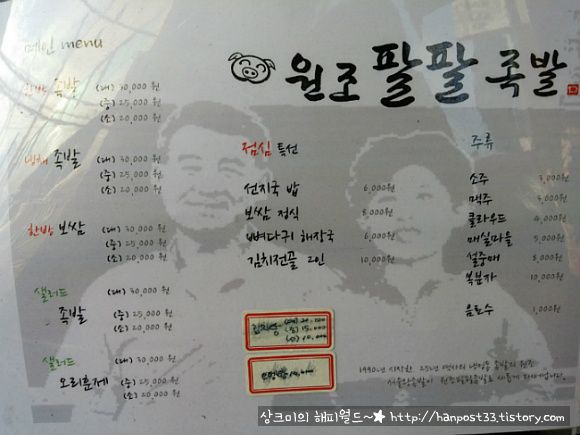 메인 menu
원조 팔팔 족발
한방 족발 (대) 30,000 원
(중) 25,000 원
(소) 20,000 원
냉채 족발 (대) 30,000 원
(중) 25,000 원
(소) 20,000 원
한방 보쌈 (대) 30,000 원
(중) 25,000 원
(소) 20,000 원
샐러드 족발 (대) 30,000 원
(중) 25,000 원
(소) 20,000 원
샐러드 오리훈제 (대) 30,000 원
(중) 25,000 원
(소) 20,000 원
점심 특선
선지국 밥 6,000원
보쌈 정식 8,000원
뼈다귀 해장국 6,000원
김치전골 2인 10,000원
주류
소주 3,000원
맥주 3,000원
클라우드 4,000원
매실마을 5,000원
설중매 8,000원
복분자 10,000원
음료수 1,000원
1990년 시작한 25년
상크미의 해피월드~★ http://hanpost33.tistory.com